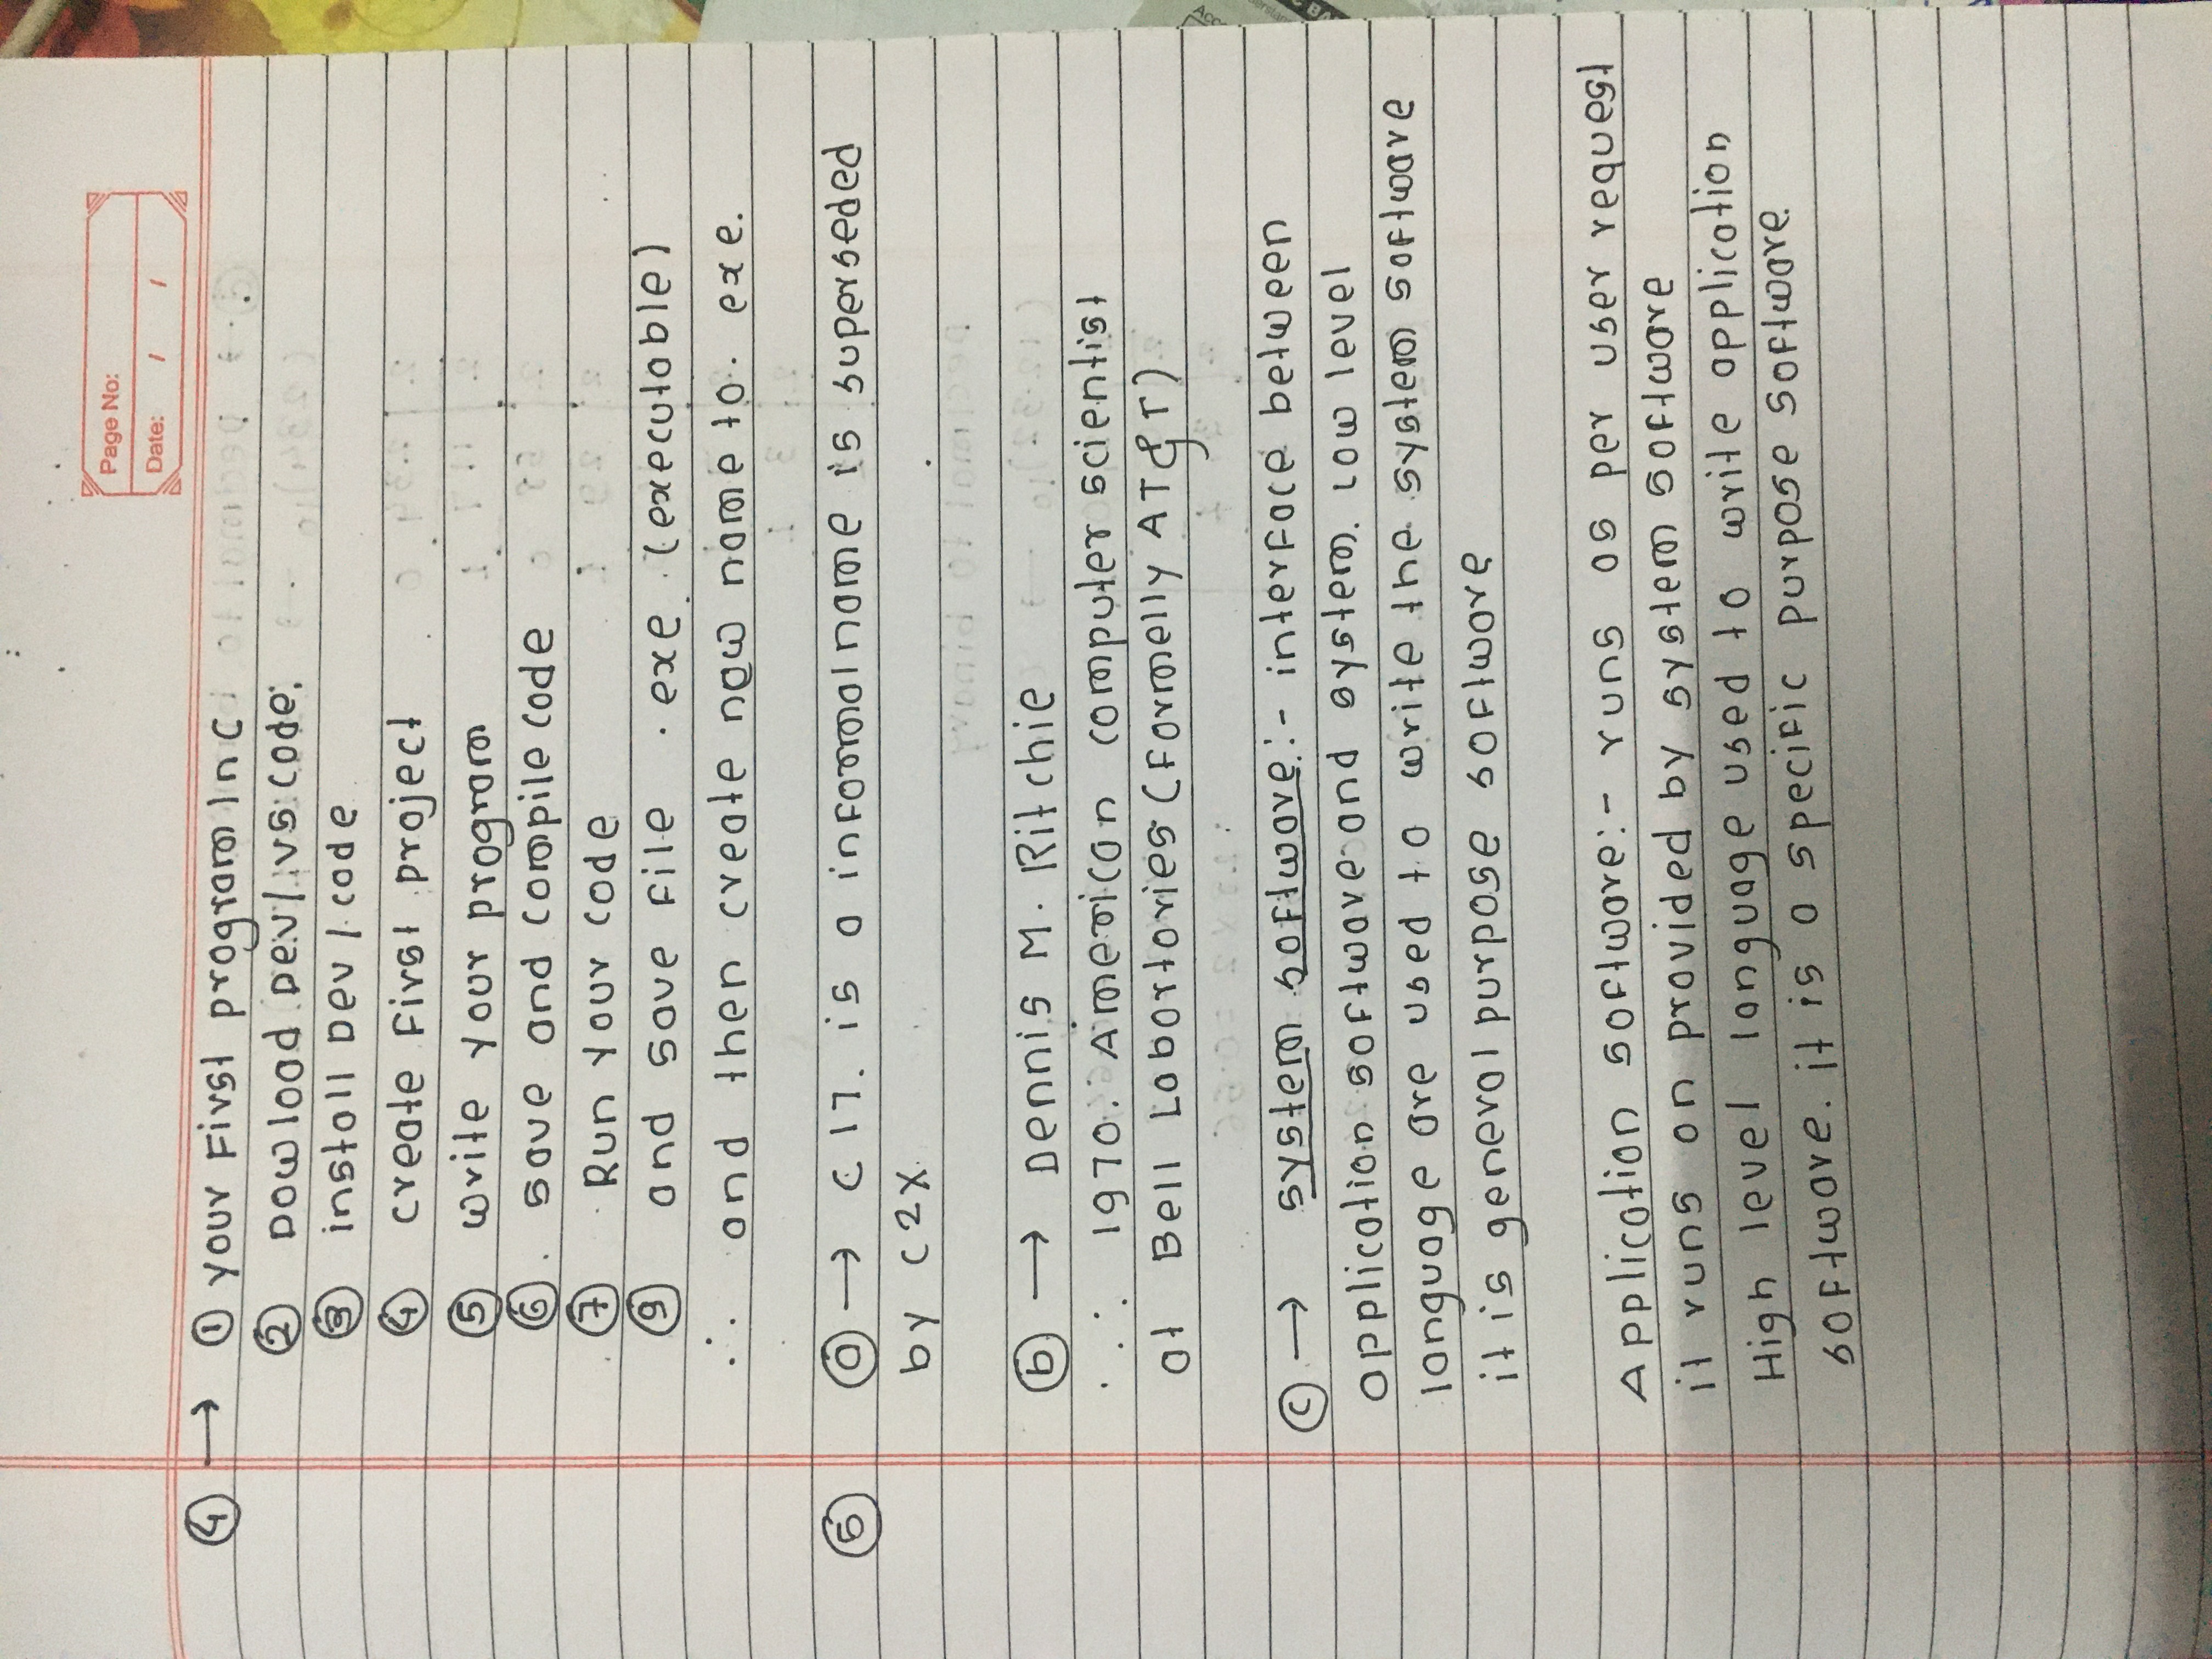 Page No:
Date: / /
④ → ① Your First program In C
② Dowload Dev / vs code.
③ install Dev / code
④ create First project
⑤ write your program
⑥ save and compile code
⑦ Run Your code
⑨ and save file .exe (executable)
∴ and then create new name to .exe.
⑤ ⓐ → C 17. is a informal name is superseded
by C2X.
ⓑ → Dennis M. Ritchie
∴ 1970. American computer scientist
at Bell Labortories (Formelly AT&T)
ⓒ → system software :- interface between
application software and system. Low level
language are used to write the system software
it is general purpose software
Application software:- runs as per user request
it runs on provided by system software
High level language used to write application
software. it is a specific purpose software.